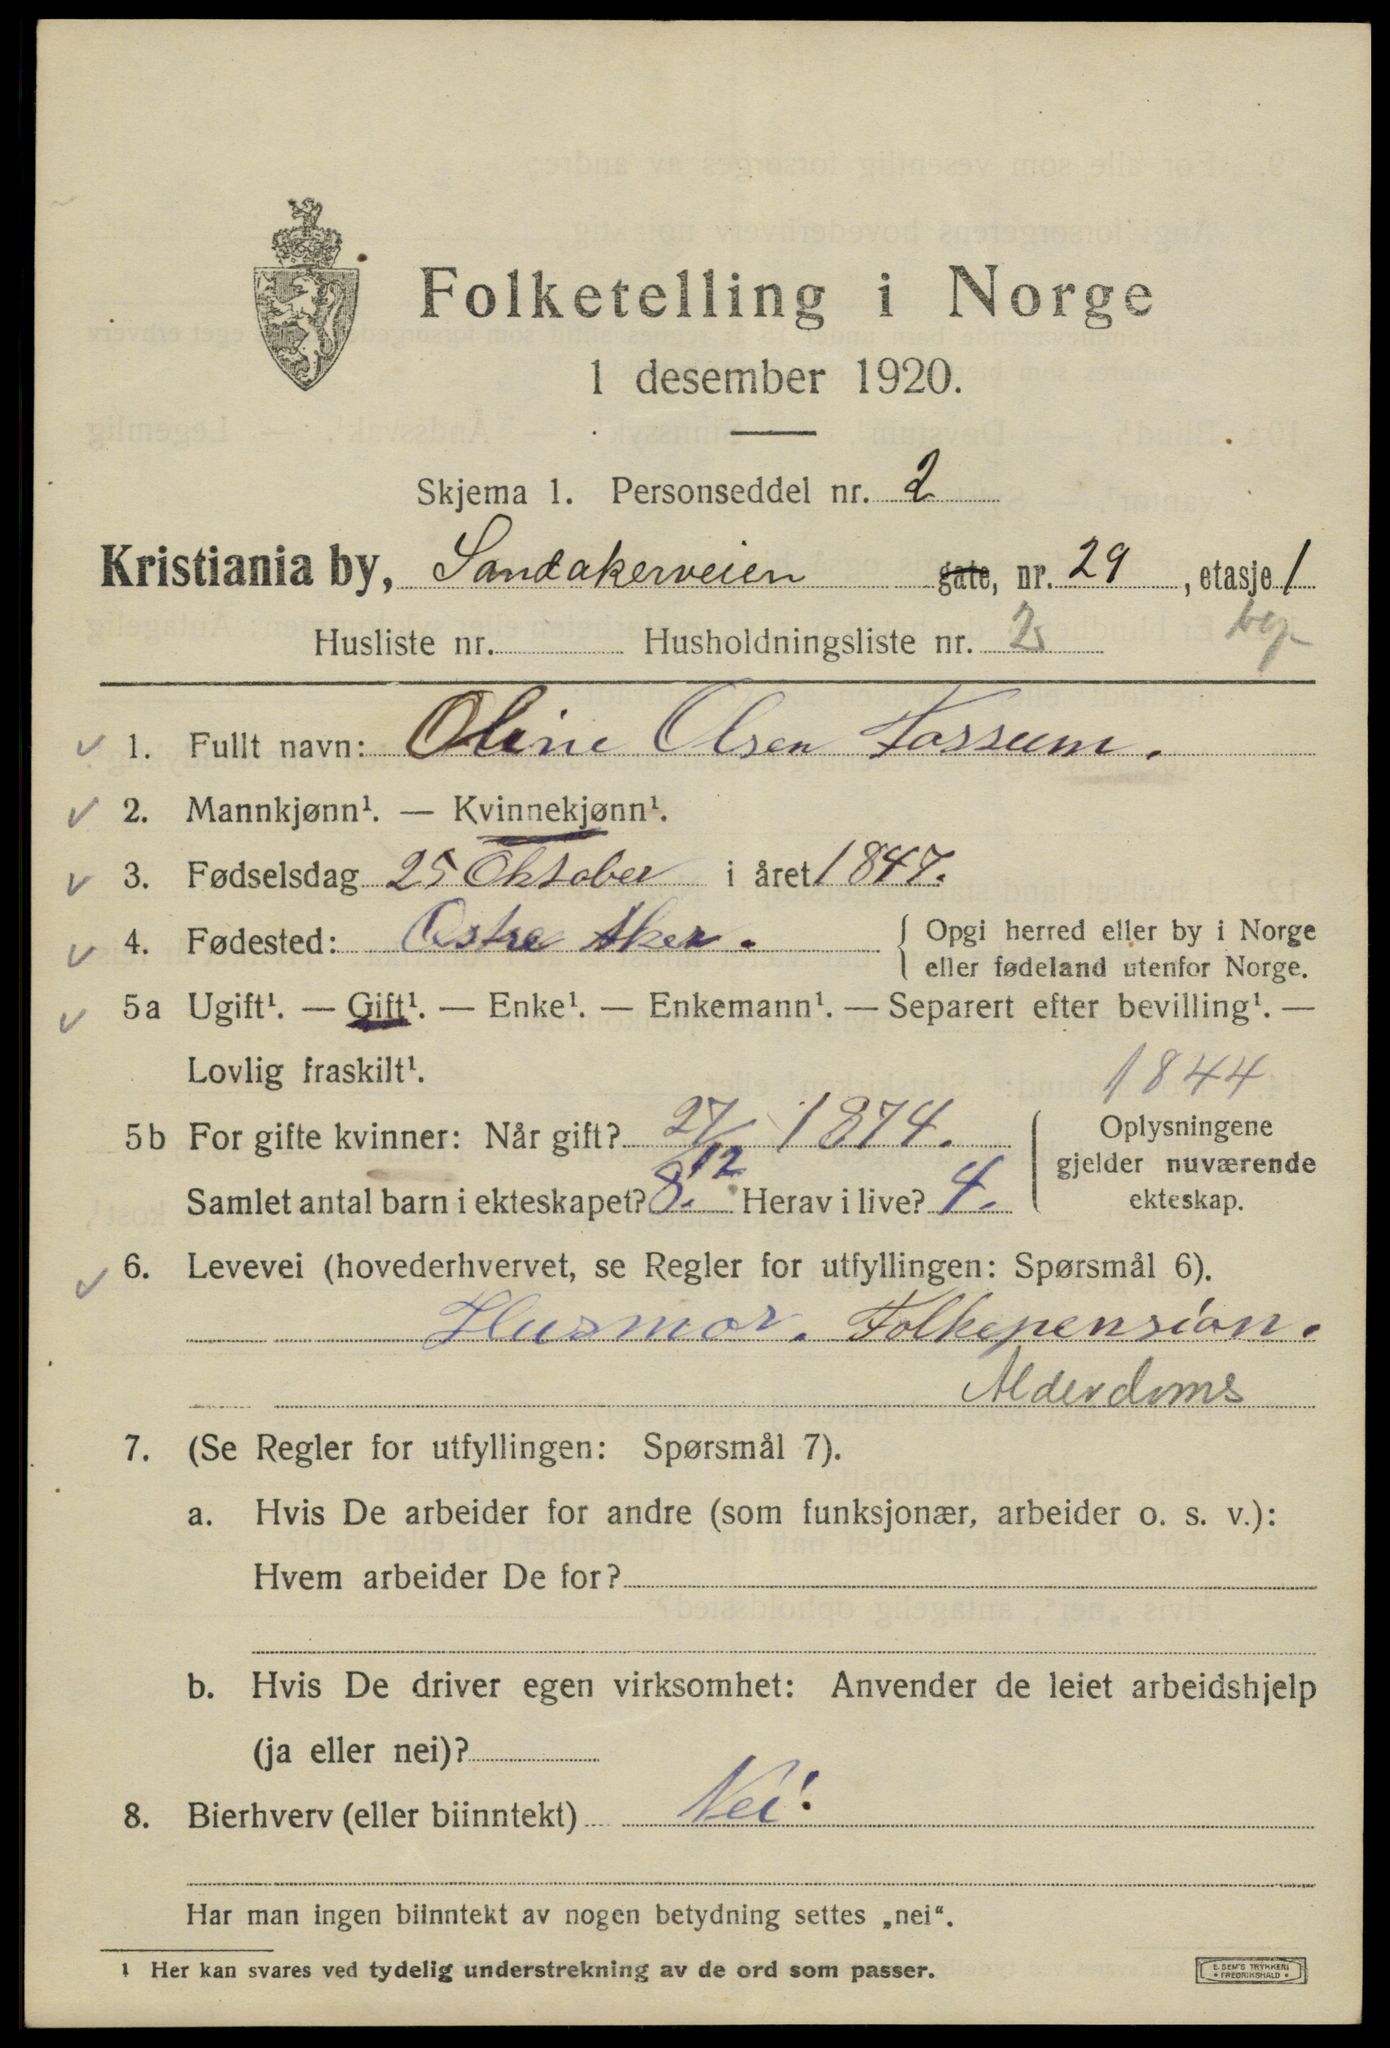 Folketelling i Norge
1 desember 1920.
Skjema 1. Personseddel nr. 2
Kristiania by, Sandakerveien gate, nr. 29, etasje 1
Husliste nr. Husholdningsliste nr. 2
1. Fullt navn: Oline Olsen Fossum.
2. Mannkjønn¹. — Kvinnekjønn¹.
3. Fødselsdag 25 Oktober i året 1847.
4. Fødested: Østre Aker. Opgi herred eller by i Norge
eller fødeland utenfor Norge.
5a Ugift¹. — Gift¹. — Enke¹. — Enkemann¹. — Separert efter bevilling¹. —
Lovlig fraskilt¹.
1844
5b For gifte kvinner: Når gift? 27/12 1874. Oplysningene
gjelder nuværende
Samlet antal barn i ekteskapet? 8. Herav i live? 4. ekteskap.
6. Levevei (hovederhvervet, se Regler for utfyllingen: Spørsmål 6).
Husmor. Folkepension.
Alderdoms
7. (Se Regler for utfyllingen: Spørsmål 7).
a. Hvis De arbeider for andre (som funksjonær, arbeider o. s. v.):
Hvem arbeider De for?
b. Hvis De driver egen virksomhet: Anvender de leiet arbeidshjelp
(ja eller nei)?
8. Bierhverv (eller biinntekt) Nei.
Har man ingen biinntekt av nogen betydning settes „nei“.
1 Her kan svares ved tydelig understrekning av de ord som passer.
E. SEM'S TRYKKERI
• FREDRIKSHALD •